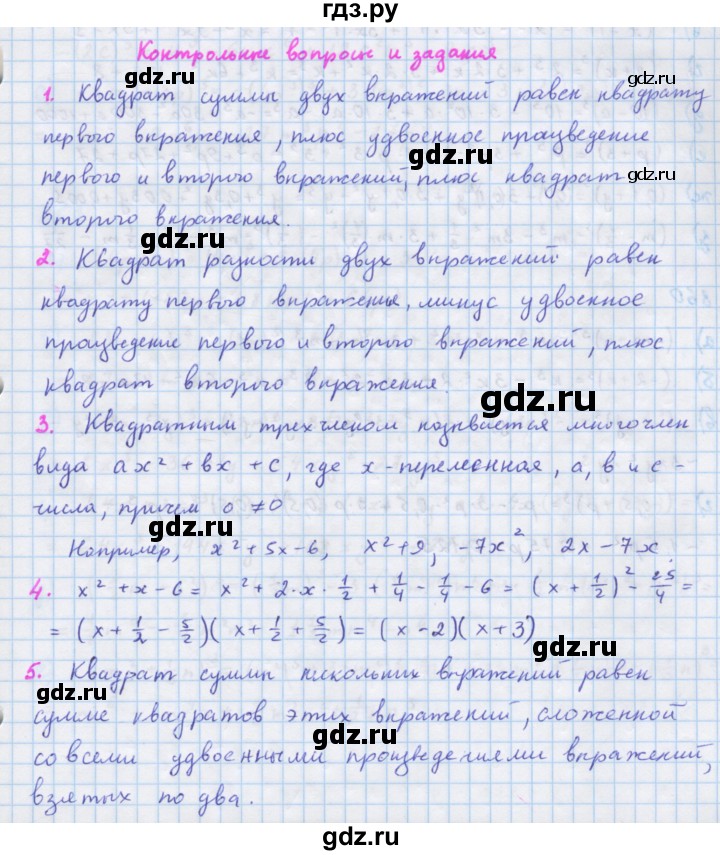 гдз.ру
Контрольные вопросы и задания
gdz.ru
gdz.ru
1. Квадрат суммы двух выражений равен квадрату
первого выражения, плюс удвоенное произведение
gdz.ru
gdz.ru
первого и второго выражений, плюс квадрат
второго выражения.
gdz.ru
gdz.ru
2. Квадрат разности двух выражений равен
квадрату первого выражения, минус удвоенное
произведение первого и второго выражений, плюс
квадрат второго выражения.
gdz.ru
3. Квадратным трехчленом называется многочлен
вида ax² + bx + c, где x - переменная, a, b и c -
числа, причем a ≠ 0
gdz.ru
gdz.ru
Например, x² + 5x - 6, x² + 9, -7x², 2x - 7x.
4. x² + x - 6 = x² + 2·x·1/2 + 1/4 - 1/4 - 6 = (x + 1/2)² - 25/4 =
= (x + 1/2 - 5/2)(x + 1/2 + 5/2) = (x - 2)(x + 3)
5. Квадрат суммы нескольких выражений равен
gdz.ru
gdz.ru
сумме квадратов этих выражений, сложенной
gdz.ru
со всеми удвоенными произведениями выражений,
взятых по два.
gdz.ru
gdz.ru